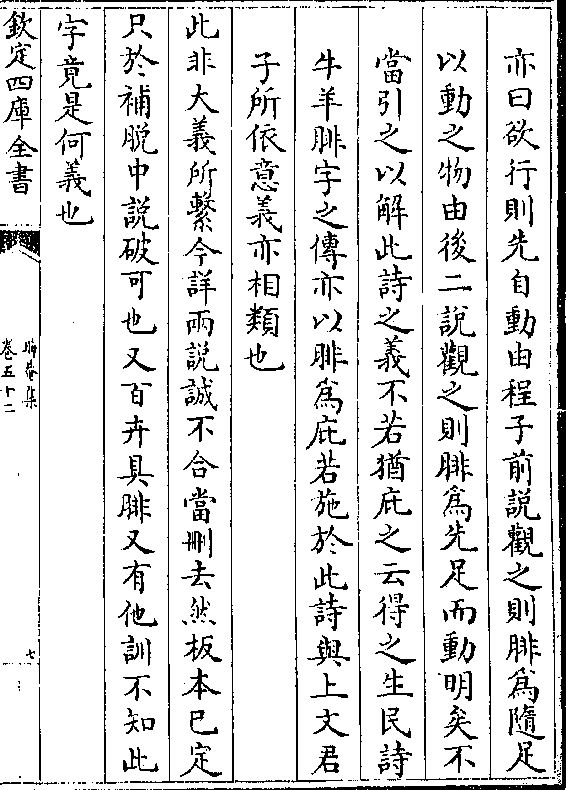 亦曰欲行則先自動由程子前說觀之則腓爲隨足
以動之物由後二說觀之則腓爲先足而動明矣不
當引之以解此詩之義不若猶庇之云得之生民詩
牛羊腓字之傳亦以腓爲庇若施於此詩與上文君
子所依意義亦相類也
此非大義所繫今詳兩說誠不合當刪去然板本已定
只於補脫中說破可也又百卉具腓又有他訓不知此
字竟是何義也
欽定四庫全書
晦菴集
卷五十二
七